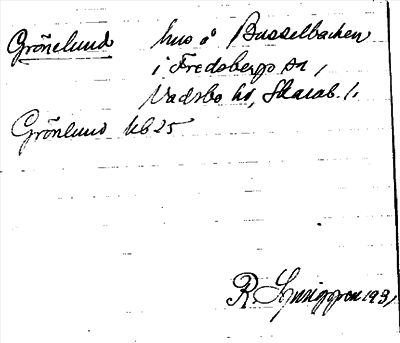 Grönelund hus å Busselbacken
i Fredsbergs sn,
Vadsbo hd, Skarab. l.
Grönlund kb 25
R. Ljunggren 1931